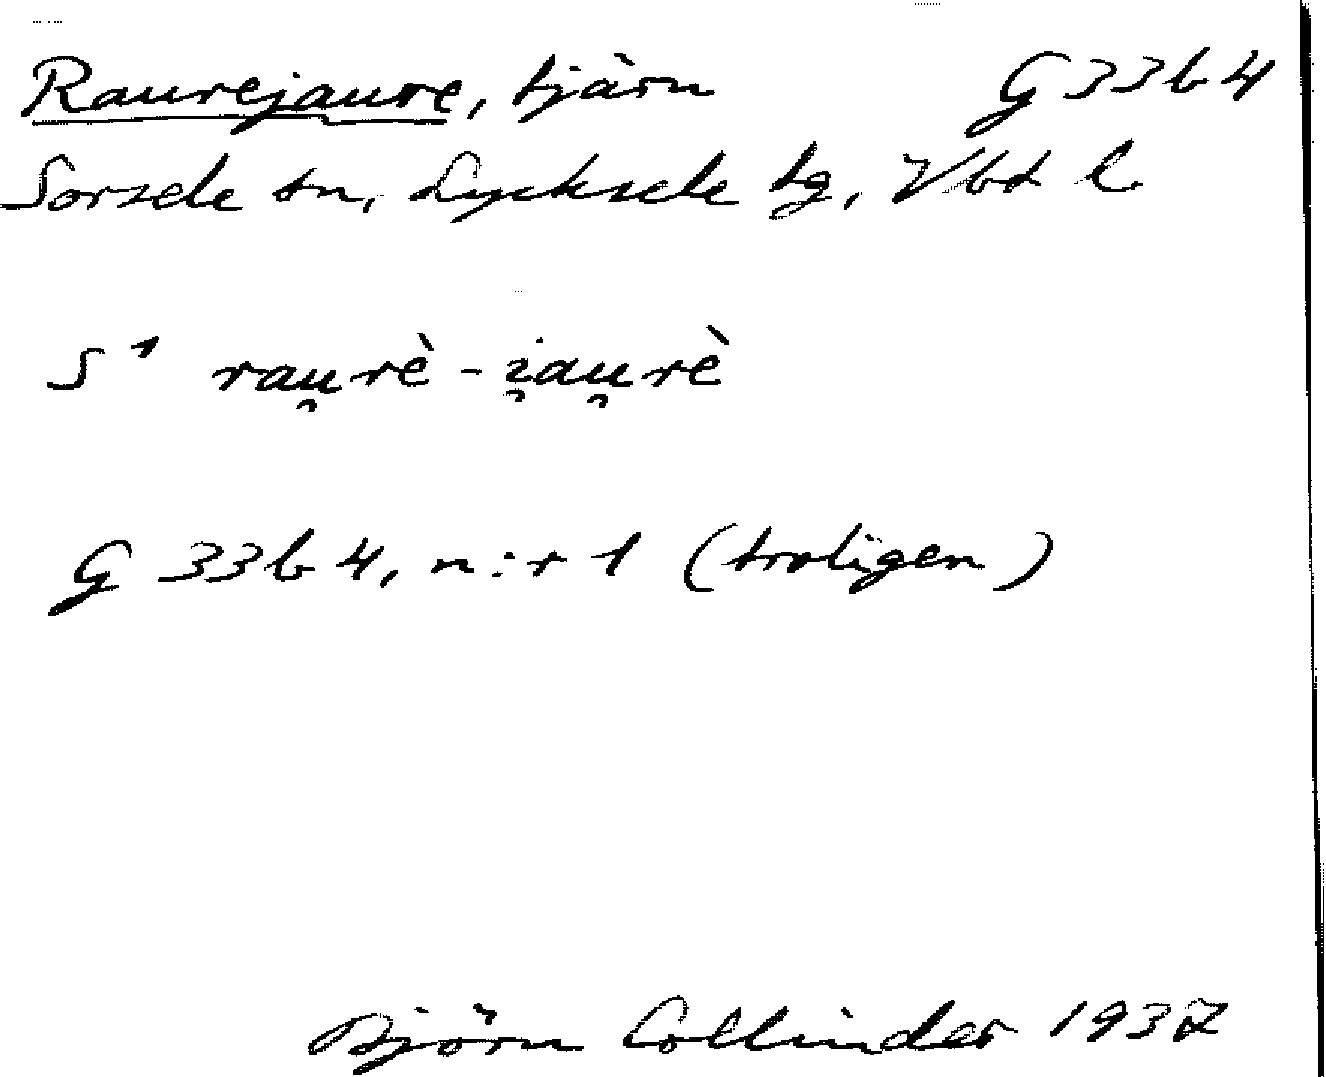 Raurejaure, tjärn G 33 b 4
Sorsele sn, Lycksele tg, Vbd l.
S¹ rau̯rè - i̯au̯rè
G 33 b 4, n:r 1 (troligen)
Björn Collinder 1937